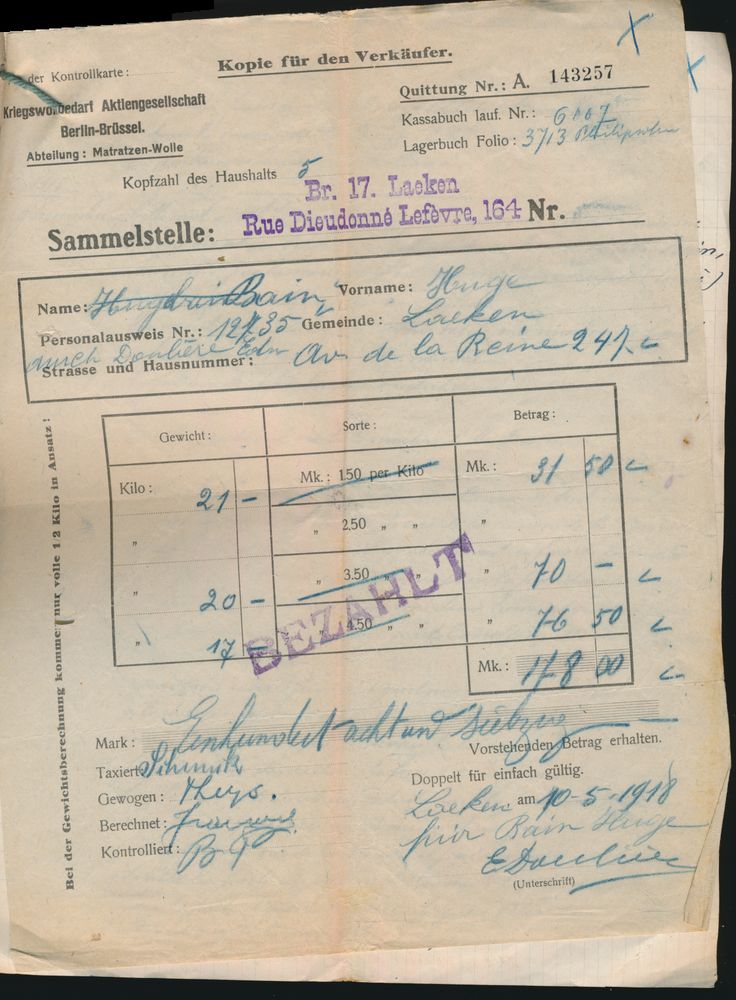 Kopie für den Verkäufer.
der Kontrollkarte:
Kriegswollbedarf Aktiengesellschaft
Berlin-Brüssel.
Abteilung: Matratzen-Wolle
Quittung Nr.: A. 143257
Kassabuch lauf. Nr.: 6007
Lagerbuch Folio: 3713
Kopfzahl des Haushalts 5
Br. 17. Laeken
Sammelstelle: Rue Dieudonné Lefèvre, 164 Nr.
Name: Bain Vorname: Huge
Personalausweis Nr.: 12735 Gemeinde: Laeken
durch
Strasse und Hausnummer: Av. de la Reine 247
Gewicht: Sorte: Betrag:
Kilo: 21 - Mk.: 1.50 per Kilo Mk.: 31 50
" " 2.50 " " "
" 20 - " 3.50 " " " 70 -
" 17 - " 4.50 " " " 76 50
BEZAHLT
Mk.: 178 00
Mark: Einhundert acht und siebzig
Vorstehenden Betrag erhalten.
Taxiert:
Doppelt für einfach gültig.
Gewogen: Theys.
Laeken am 10-5-1918
Berechnet:
für Bain Huge
Kontrolliert:
(Unterschrift)
Bei der Gewichtsberechnung kommen nur volle 1/2 Kilo in Ansatz!